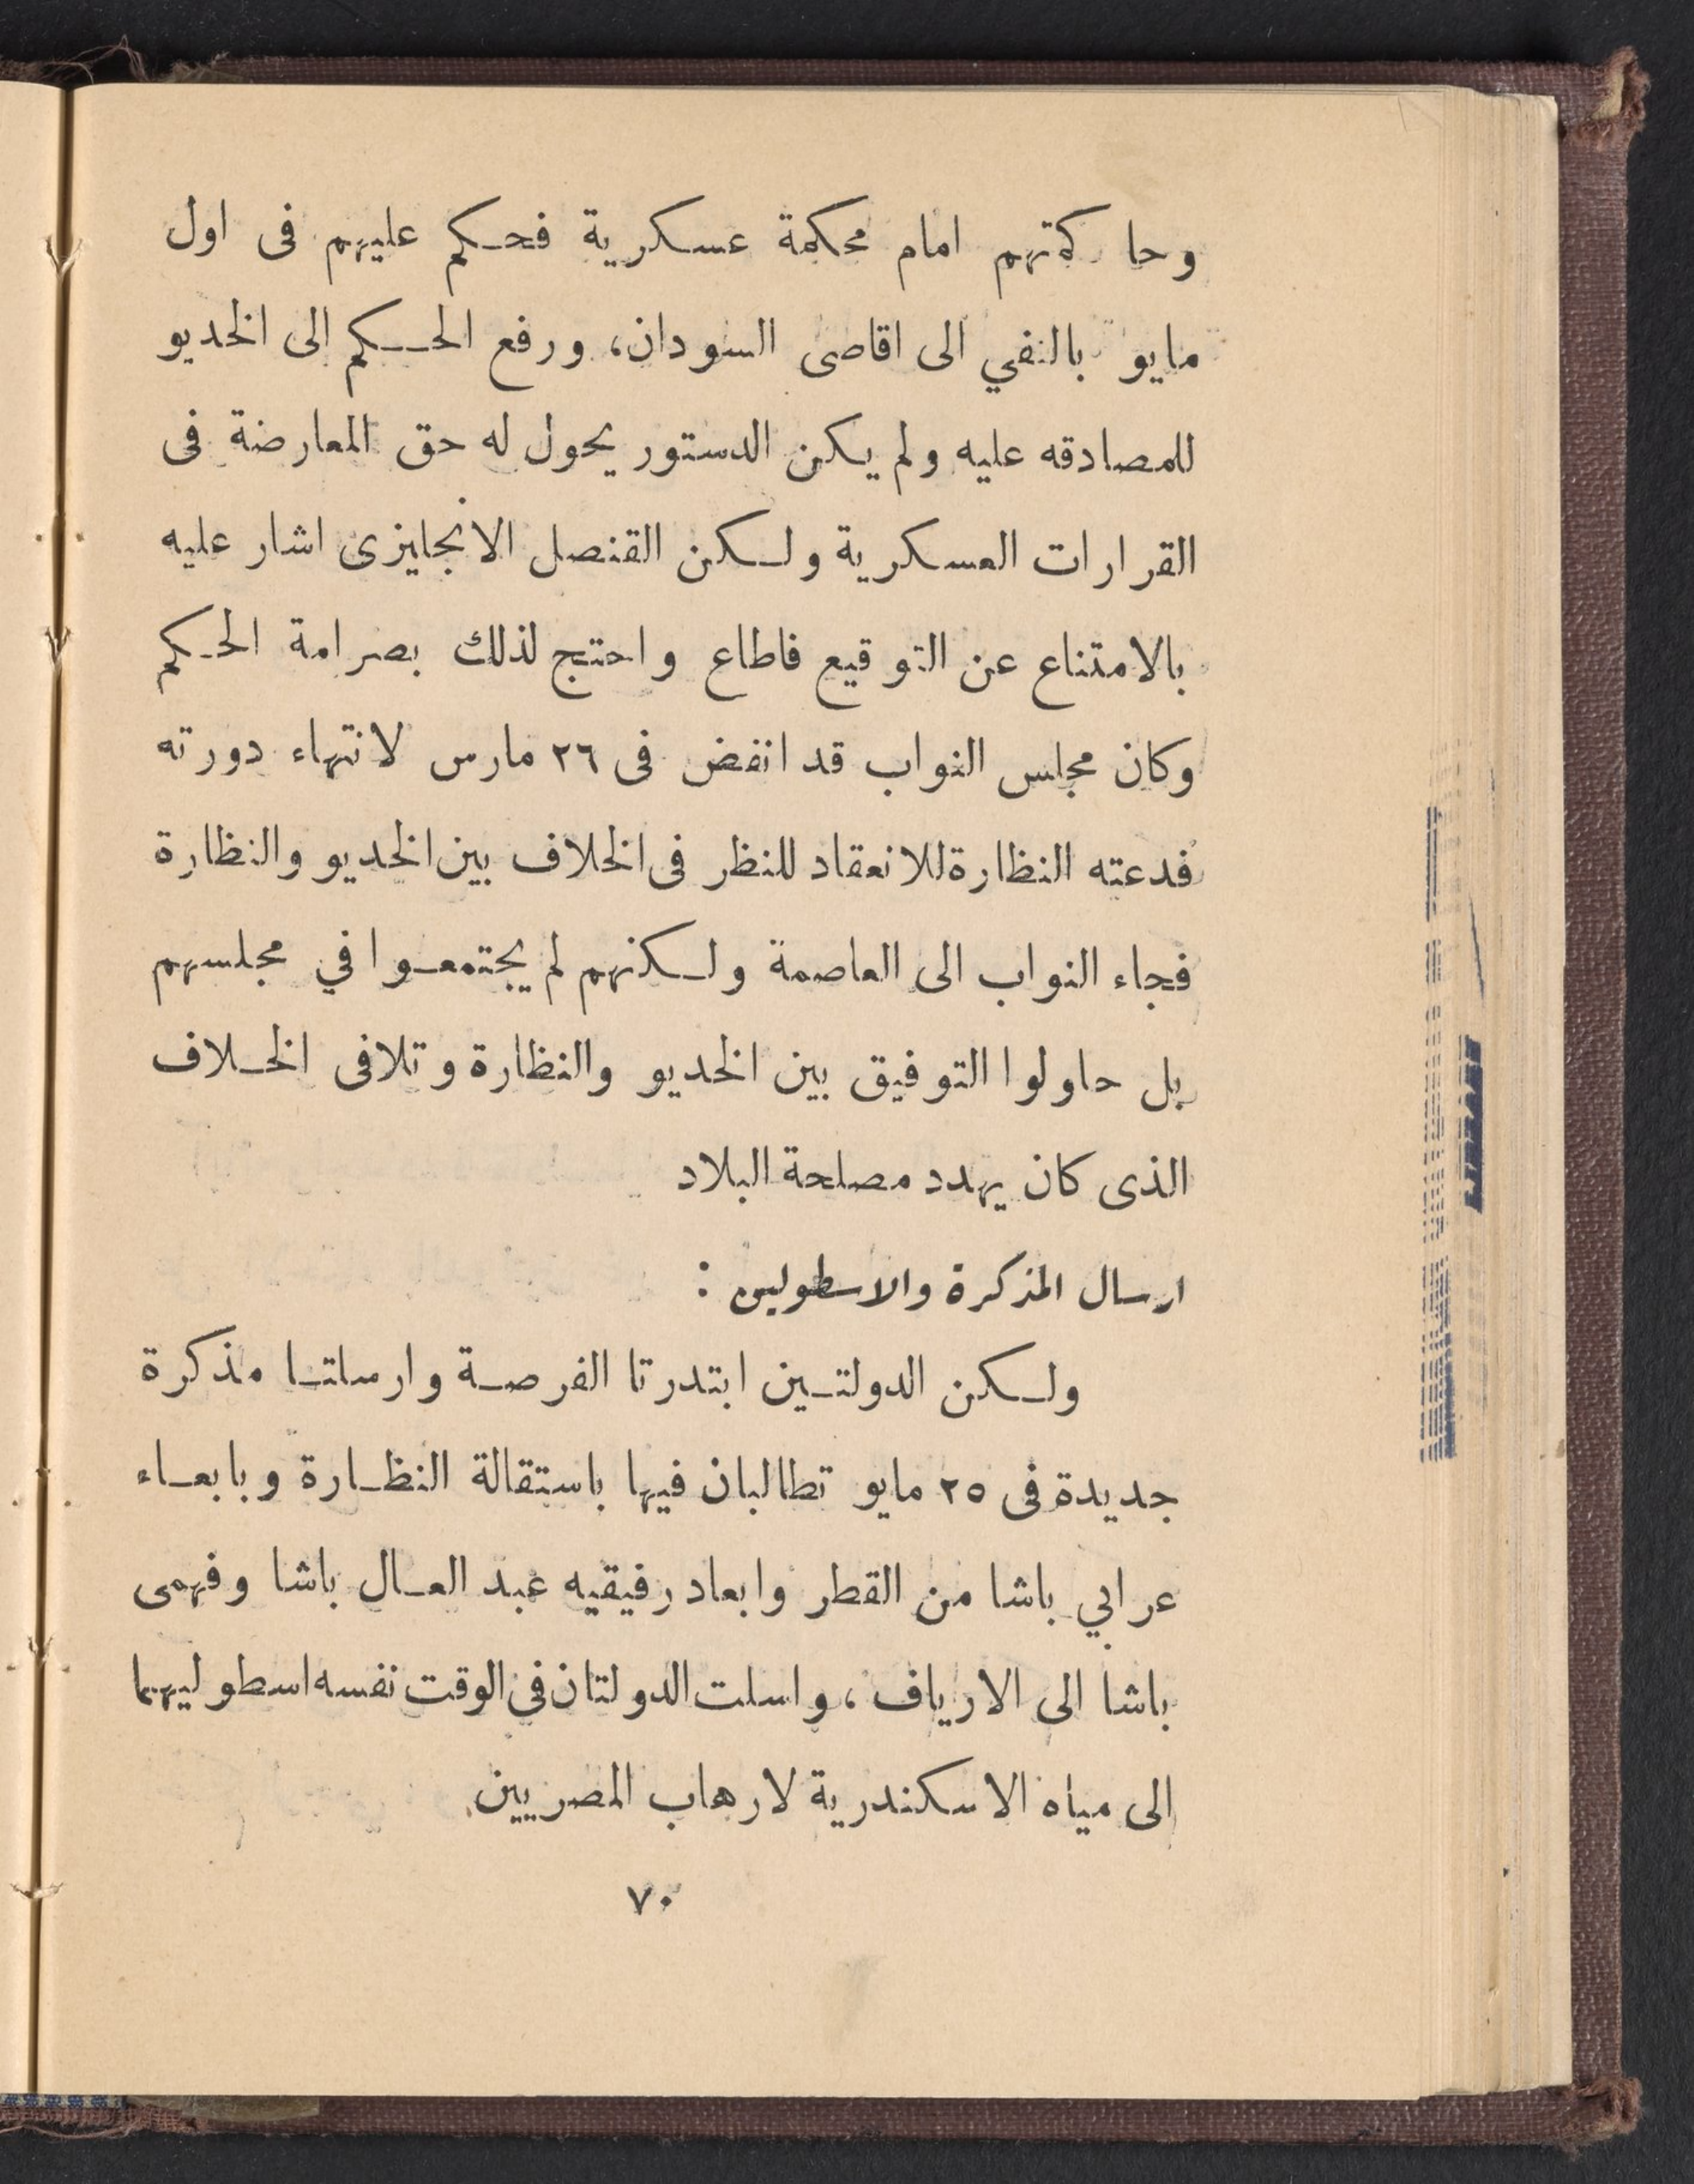 وحاكمتهم امام محكمة عسكرية فحكم عليهم فى اول
مايو بالنفي الى اقاصى السودان، ورفع الحكم الى الخديو
للمصادقه عليه ولم يكن الدستور يحول له حق المعارضة فى
القرارات العسكرية ولكن القنصل الانجليزى اشار عليه
بالامتناع عن التوقيع فاطاع واحتج لذلك بصرامة الحكم
وكان مجلس النواب قد انفض فى ٢٦ مارس لانتهاء دورته
فدعته النظارة للانعقاد للنظر فى الخلاف بين الخديو والنظارة
فجاء النواب الى العاصمة ولكنهم لم يجتمعوا في مجلسهم
بل حاولوا التوفيق بين الخديو والنظارة وتلافى الخلاف
الذى كان يهدد مصلحة البلاد
ارسال المذكرة والاسطولين :
ولكن الدولتين ابتدرتا الفرصة وارسلتا مذكرة
جديدة فى ٢٥ مايو تطالبان فيها باستقالة النظارة وبابعاء
عرابي باشا من القطر وابعاد رفيقيه عبد العال باشا وفهمى
باشا الى الارياف، واسلت الدولتان في الوقت نفسه اسطوليهما
الى مياه الاسكندرية لارهاب المصريين
٧٠